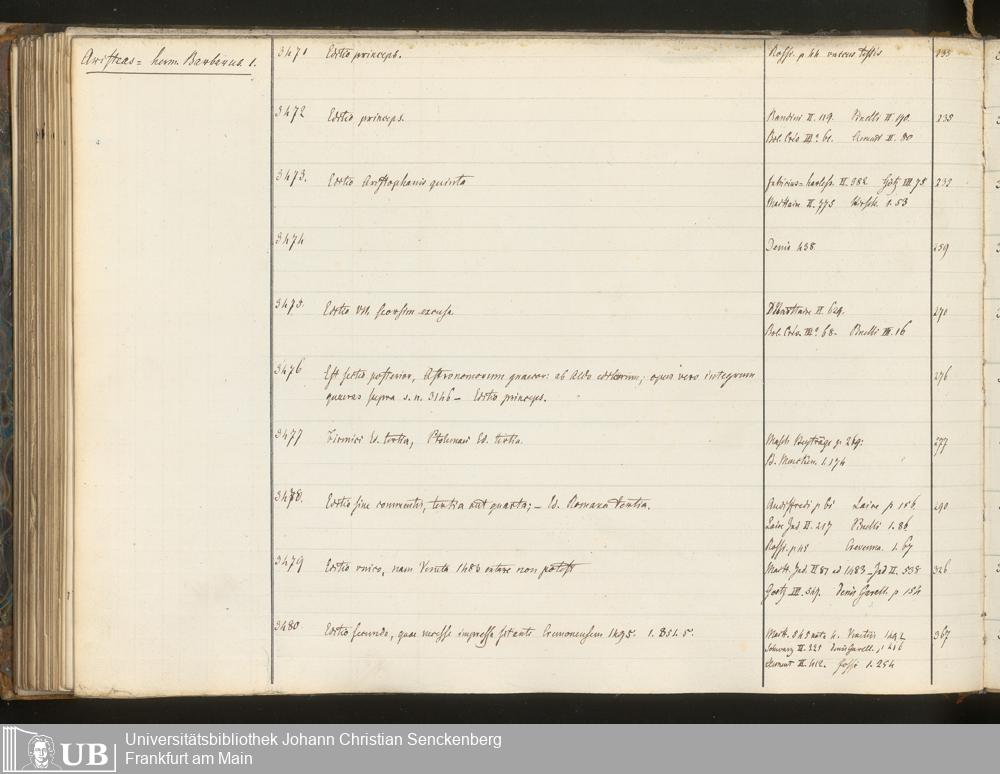 Aristeas = herm. Barbarus. 1.
3471 Editio princeps. Rossi. p. 44 unicus testis 235
3472 Editio princeps. II. 119. Pinelli II. 190. 238
III. 61. Clement II. 80
3473. Editio Aristophanis quinta Fabricius = harless. II. 382 Götz III. 78 232
Maittaire II. 775 1. 53
3474 Denis. 438. 259
3475. Editio VII. seorsim excusa Maittaire II. 624. 270
III. 68. Pinelli III. 16
3476 Est sectio posterior, Astronomorum ab Aldo editorum; opus vero integrum 276
quaeras supra s. n. 3146 – Editio princeps.
3477 Firmici Ed. tertia, Ptolemaei Ed. tertia. Masch Beyträge p. 269: 277
B. 1. 174
3478. Editio sine commentis, tertia aut quarta; – Ed. Romana tertia. Audiffredi p 61 Laire p 156. 290
Laire Ind II. 217 Pinelli 1. 86
Rossi. p 45 Crevenna. 1. 67
3479 Editio unica, nam Veneta 1486 extare non potest Maitt. Ind. II 81 ad 1483 – Ind II. 538 326
Goetz III. 349. Denis Garell. p 154
3480. Editio secunda, quae necesse impressa Cremonensem 1495. 1. 851. 5. Maitt. 845 nota 4. Venetiis 1492 367
Schwarz II. 221 Denis Garell., 216
Clement II. 412. Fossi 1. 254
UB Universitätsbibliothek Johann Christian Senckenberg
Frankfurt am Main